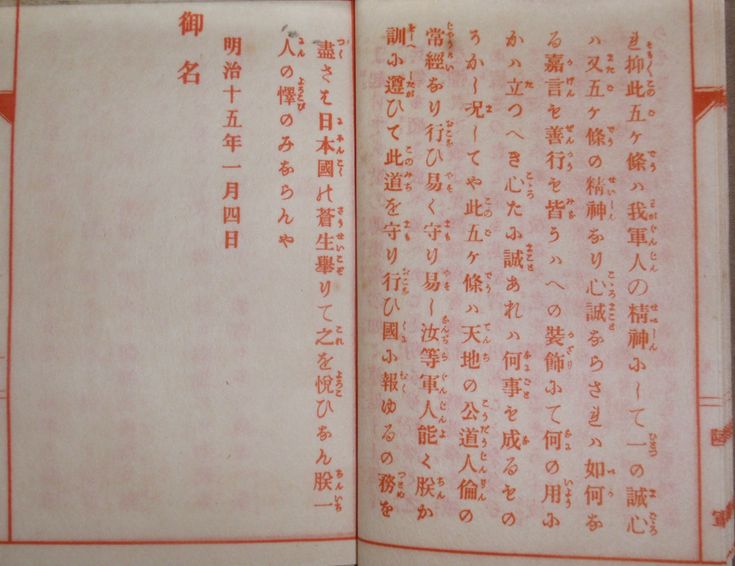 れ抑此五ケ條ハ我軍人の精神にして一の誠心
ハ又五ケ條の精神なり心誠ならされハ如何な
る嘉言も善行も皆うハへの装飾にて何の用に
かハ立つへき心たに誠あれハ何事も成るもの
そかし况してや此五ケ條ハ天地の公道人倫の
常經なり行ひ易く守り易し汝等軍人能く朕か
訓に遵ひて此道を守り行ひ國に報ゆるの務を
盡さは日本國の蒼生擧りて之を悅ひなん朕一
人の懌のみならんや
明治十五年一月四日
御名